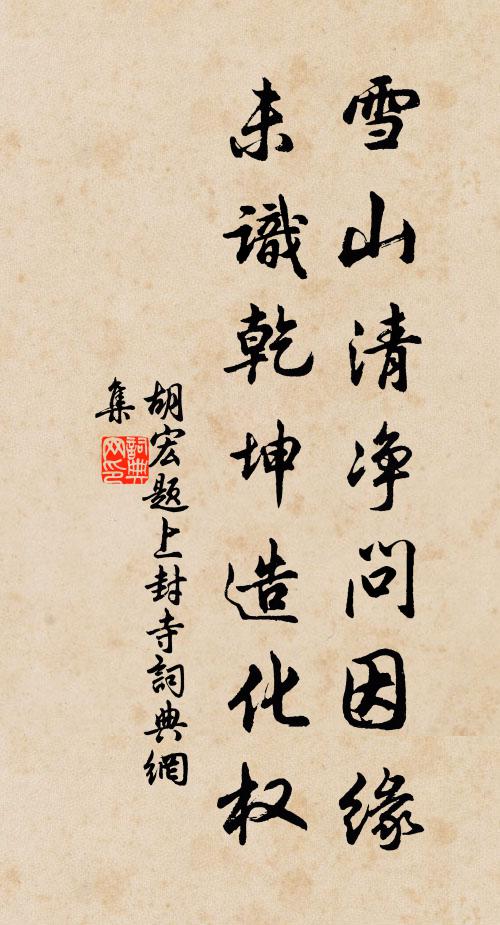 雪山清净问因缘
未識乾坤造化权
胡宏题上封寺詞典網
集
詞典
网印